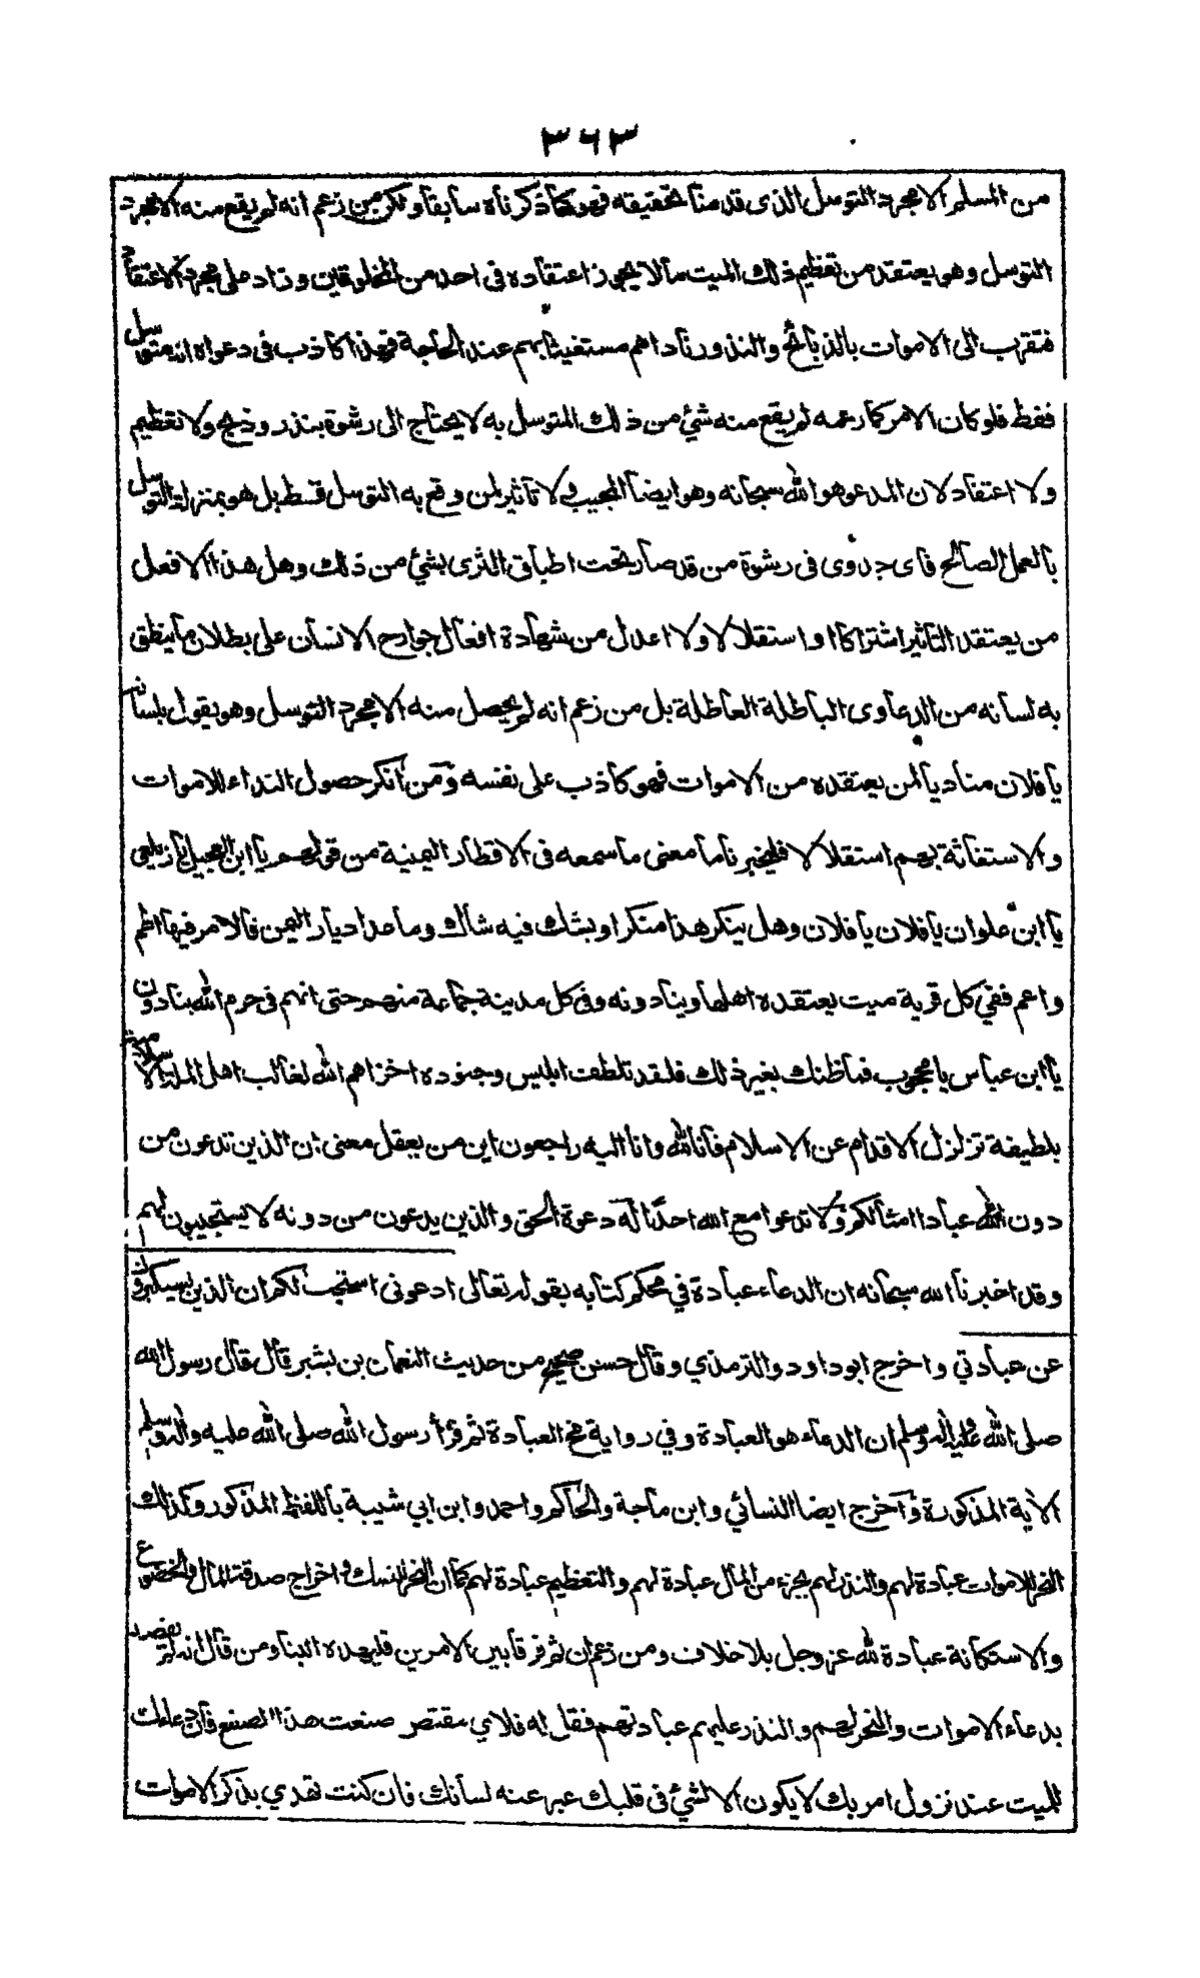 ٣٦٣
من المسلم الا مجرد التوسل الذى قدمنا تحقيقه فهو كما ذكرناه سابقا ولكن من زعم انه لم يقع منه الا مجرد
التوسل وهو يعتقد من تعظيم ذلك الميت ما لا يجوز اعتقاده فى احد من المخلوقين وزاد على مجرد الاعتقاد
فتقرب الى الاموات بالذبائح والنذور وناداهم مستغيثا بهم عند الحاجة فهذا كاذب فى دعواه انه متوسل
فقط فلو كان الامر كما زعمه لم يقع منه شئ من ذلك المتوسل به لا يحتاج الى رشوة بنذر وذبح ولا تعظيم
ولا اعتقاد لان المدعو هو الله سبحانه وهو ايضا المجيب ولا تاثير لمن وقع به التوسل قط بل هو بمنزلة التوسل
بالعمل الصالح فاى جدوى فى رشوة من قد صار تحت اطباق الثرى بشئ من ذلك وهل هذا الا فعل
من يعتقد التاثير اشتراكا او استقلالا ولا اعدل من شهادة افعال جوارح الانسان على بطلان ما ينطق
به لسانه من الدعاوى الباطلة العاطلة بل من زعم انه لم يحصل منه الا مجرد التوسل وهو يقول بلسانه
يا فلان مناديا لمن يعتقده من الاموات فهو كاذب على نفسه ومن انكر حصول النداء للاموات
والاستغاثة بهم استقلالا فليخبرنا ما معنى ما سمعه فى الاقطار اليمنية من قولهم يا ابن العجيل يا زيلعى
يا ابن علوان يا فلان يا فلان وهل ينكر هذا منكر او يشك فيه شاك وما عدا ديار اليمن فالامر فيها اطم
واعم ففي كل قرية ميت يعتقده اهلها وينادونه وفى كل مدينة جماعة منهم حتى انهم فى حرم الله ينادون
يا ابن عباس يا محجوب فما ظنك بغير ذلك فلقد تلطف ابليس وجنوده اخزاهم الله لغالب اهل الملة الاسلامية
بلطيفة تزلزل الاقدام عن الاسلام فانا لله وانا اليه راجعون اين من يعقل معنى ان الذين تدعون من
دون الله عبادا امثالكم ولا تدعوا مع الله احدا له دعوة الحق والذين يدعون من دونه لا يستجيبون لهم
وقد اخبرنا الله سبحانه ان الدعاء عبادة في محكم كتابه بقوله تعالى ادعونى استجب لكم ان الذين يستكبرون
عن عبادتي واخرج ابو داود والترمذي وقال حسن صحيح من حديث النعمان بن بشير قال قال رسول الله
صلى الله عليه وآله وسلم ان الدعاء هو العبادة وفي رواية مخ العبادة ثم قرأ رسول الله صلى الله عليه وآله وسلم
الآية المذكورة وآخرج ايضا النسائي وابن ماجة والحاكم واحمد وابن ابي شيبة باللفظ المذكور وكذلك
النحر للاموات عبادة لهم والنذر لهم بجزء من المال عبادة لهم والتعظيم عبادة لهم كما ان النحر للنسك واخراج صدقة المال والخضوع
والاستكانة عبادة لله عز وجل بلا خلاف ومن زعم ان ثم فرقا بين الامرين فليهده الينا ومن قال انه لم يقصد
بدعاء الاموات والنحر لهم والنذر عليهم عبادتهم فقل له فلاي مقتض صنعت هذا الصنع فان دعاءك
للميت عند نزول امر بك لا يكون الا لشئ فى قلبك عبر عنه لسانك فان كنت تهذي بذكر الاموات